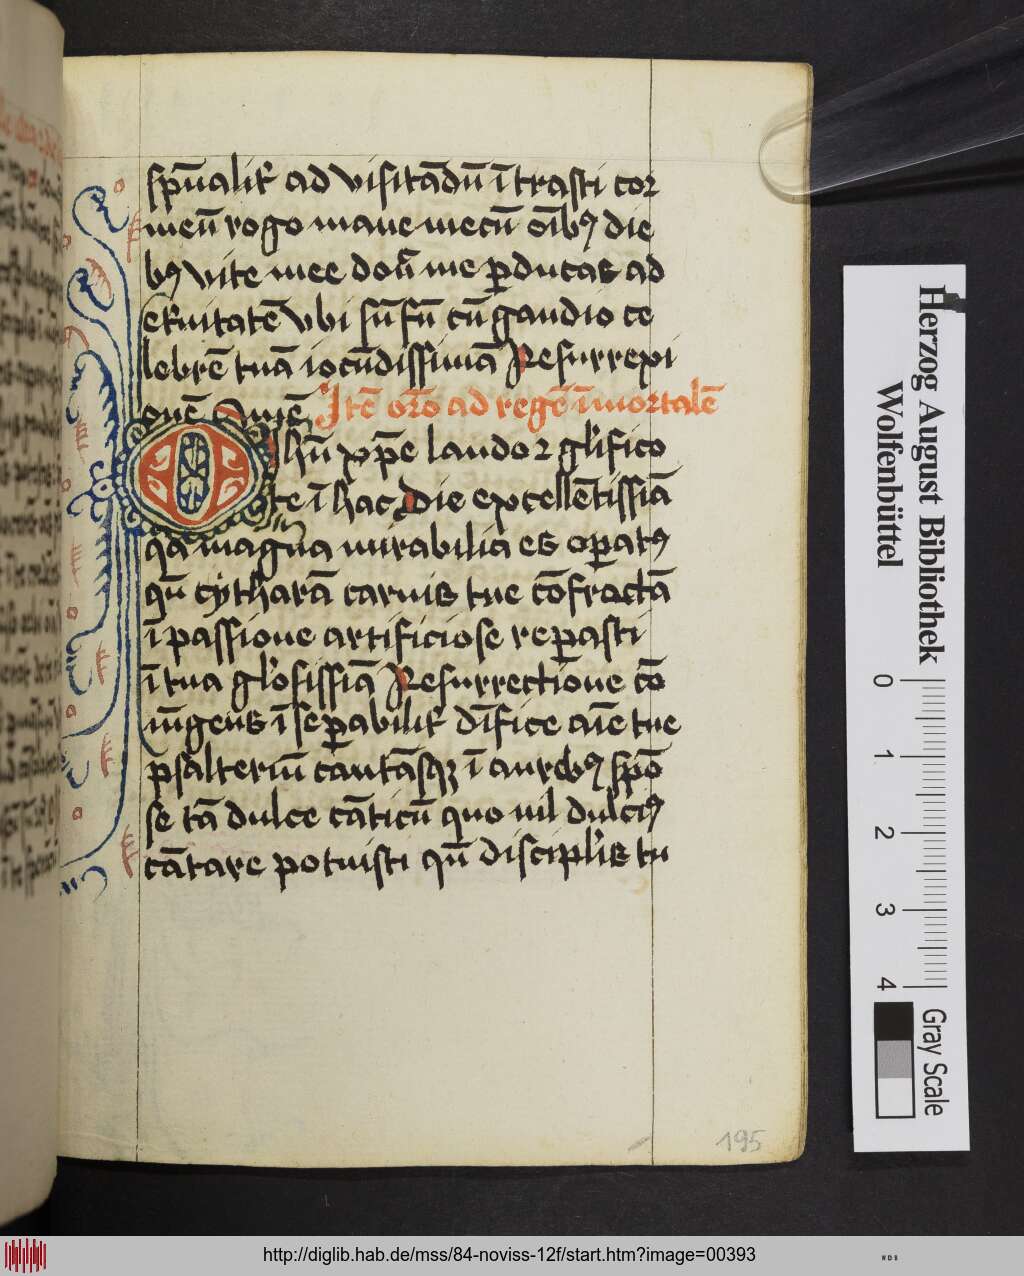 sp̄ualit͛ ad visitādū ītrasti cor
meū rogo mane mecū oīb9 die
b9 vite mee don̄ me ꝑducas ad
et͛nitatē vbi sū sū cū gaudio ce
lebrē tuā iocūdissimā Resurrexi
onē Amē Itē or̄o ad regē īmortalē
O Ihū xp̄e laudo ⁊ gl'ifico
te ī hac die excellētissiā
qa magna mirabilia es oꝑat9
qn̄ cytharā carnis tue cōfractā
ī passione artificiose reꝑasti
ī tua gl'osissīa Resurrectione cō
iūgens īseꝑabilit͛ dīfice aīe tue
psalteriū cantāsqꝫ ī aurib9 spō
se tā dulce cāticū quo nil dulci9
cātare potuisti qn̄ discipl'is tu
195
Herzog August Bibliothek
Wolfenbüttel
0 1 2 3 4
Gray Scale
http://diglib.hab.de/mss/84-noviss-12f/start.htm?image=00393